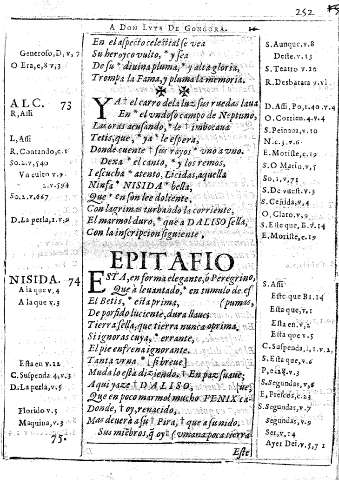 A DON LVYS DE GONGORA.
252
En el aspecto celestial se vea
Su heroyco vulto, * y sea
De su * diuina pluma, * y alta gloria,
Trompa la Fama, y pluma la memoria.
Generoso, D, v, 7
O Era, e 8, v, 3
S. Aunque, v. 8
Deste. v. 13
S. Teatro v. 20
R. Desbarata v. vl.
ALC. 73
R, Assi
L, Assi
R. Contando, z. 1
So. 2. v, 540
Va culto v. 9
2. v. 594
So. 2. v. 667
D. La perla, 1. v, 9
YA † el carro de la luz sus ruedas laua
En * el vndoso campo de Neptuno,
Las oras acusando, * de † imbocaua
Tetis, que, * ya * le espera,
Donde cuente † sus rayos * vno a vno.
Dexa * el canto, * y los remos,
I escucha * atento, Licidas, aquella
Ninfa * NISIDA * bella,
Que * en son lee doliente,
Con lagrimas turbando la corriente,
El marmol duro, * que a DALISO sella,
Con la inscripcion siguiente.
D. Assi, Po, 1. 40. v. 4
O. Corrien, 4. v. 4
S. Peinaoz, v. 10
N. c. 3. v. 6
E. Morisle, c. 19
S. O Mario, v. 5
So. 1, v, 71
S. De vuest. v. 3
S. Ceñida, v, 4
O, Claro, v. 9
S. Este que, E. v. 14
E. Moriste, e. 19
EPITAFIO
NISIDA. 74
A la que v. 4
A la que v. 3
Esta en v. 22
C. Suspenda 4. v. 3
D. La perla, v. 5
Florido v. 5
Maquina, v. 3
75.
ESTA, en forma elegante, ô Peregrino,
Que â leuantado, * en tumulo de es
El Betis, * esta prima, (pumas,
De porfido luciente, dura llaue:
Tierra sella, que tierra nunca oprima,
Si ignoras cuya, * errante,
El pie enfrena ignorante.
Tanta vrna * [si breue]
Muda lo està diziendo. † En paz suaue;
Aqui yaze † DALISO,
Que en poco marmol mucho FENIX ca-
Donde, † oy, renacido,
Mas deuerà asu † Pira, † que a su nido.
Sus miẽbros, q̃ oy (vmana poca tierra
Este
S. Assi
Este que B 1. 14
Esta que, v. 1
Esta en, v. 2
Esta v. 5
C. Suspenda, 1. 1. v. 2,
S. Esta que, v. 6
S. Segundas, v, 8
E, Prescos, c. 23
S. Segundas, v. 7
Segundas, v. 9
Ser, v. 14
Ayer Dei. v. 5, 7 2